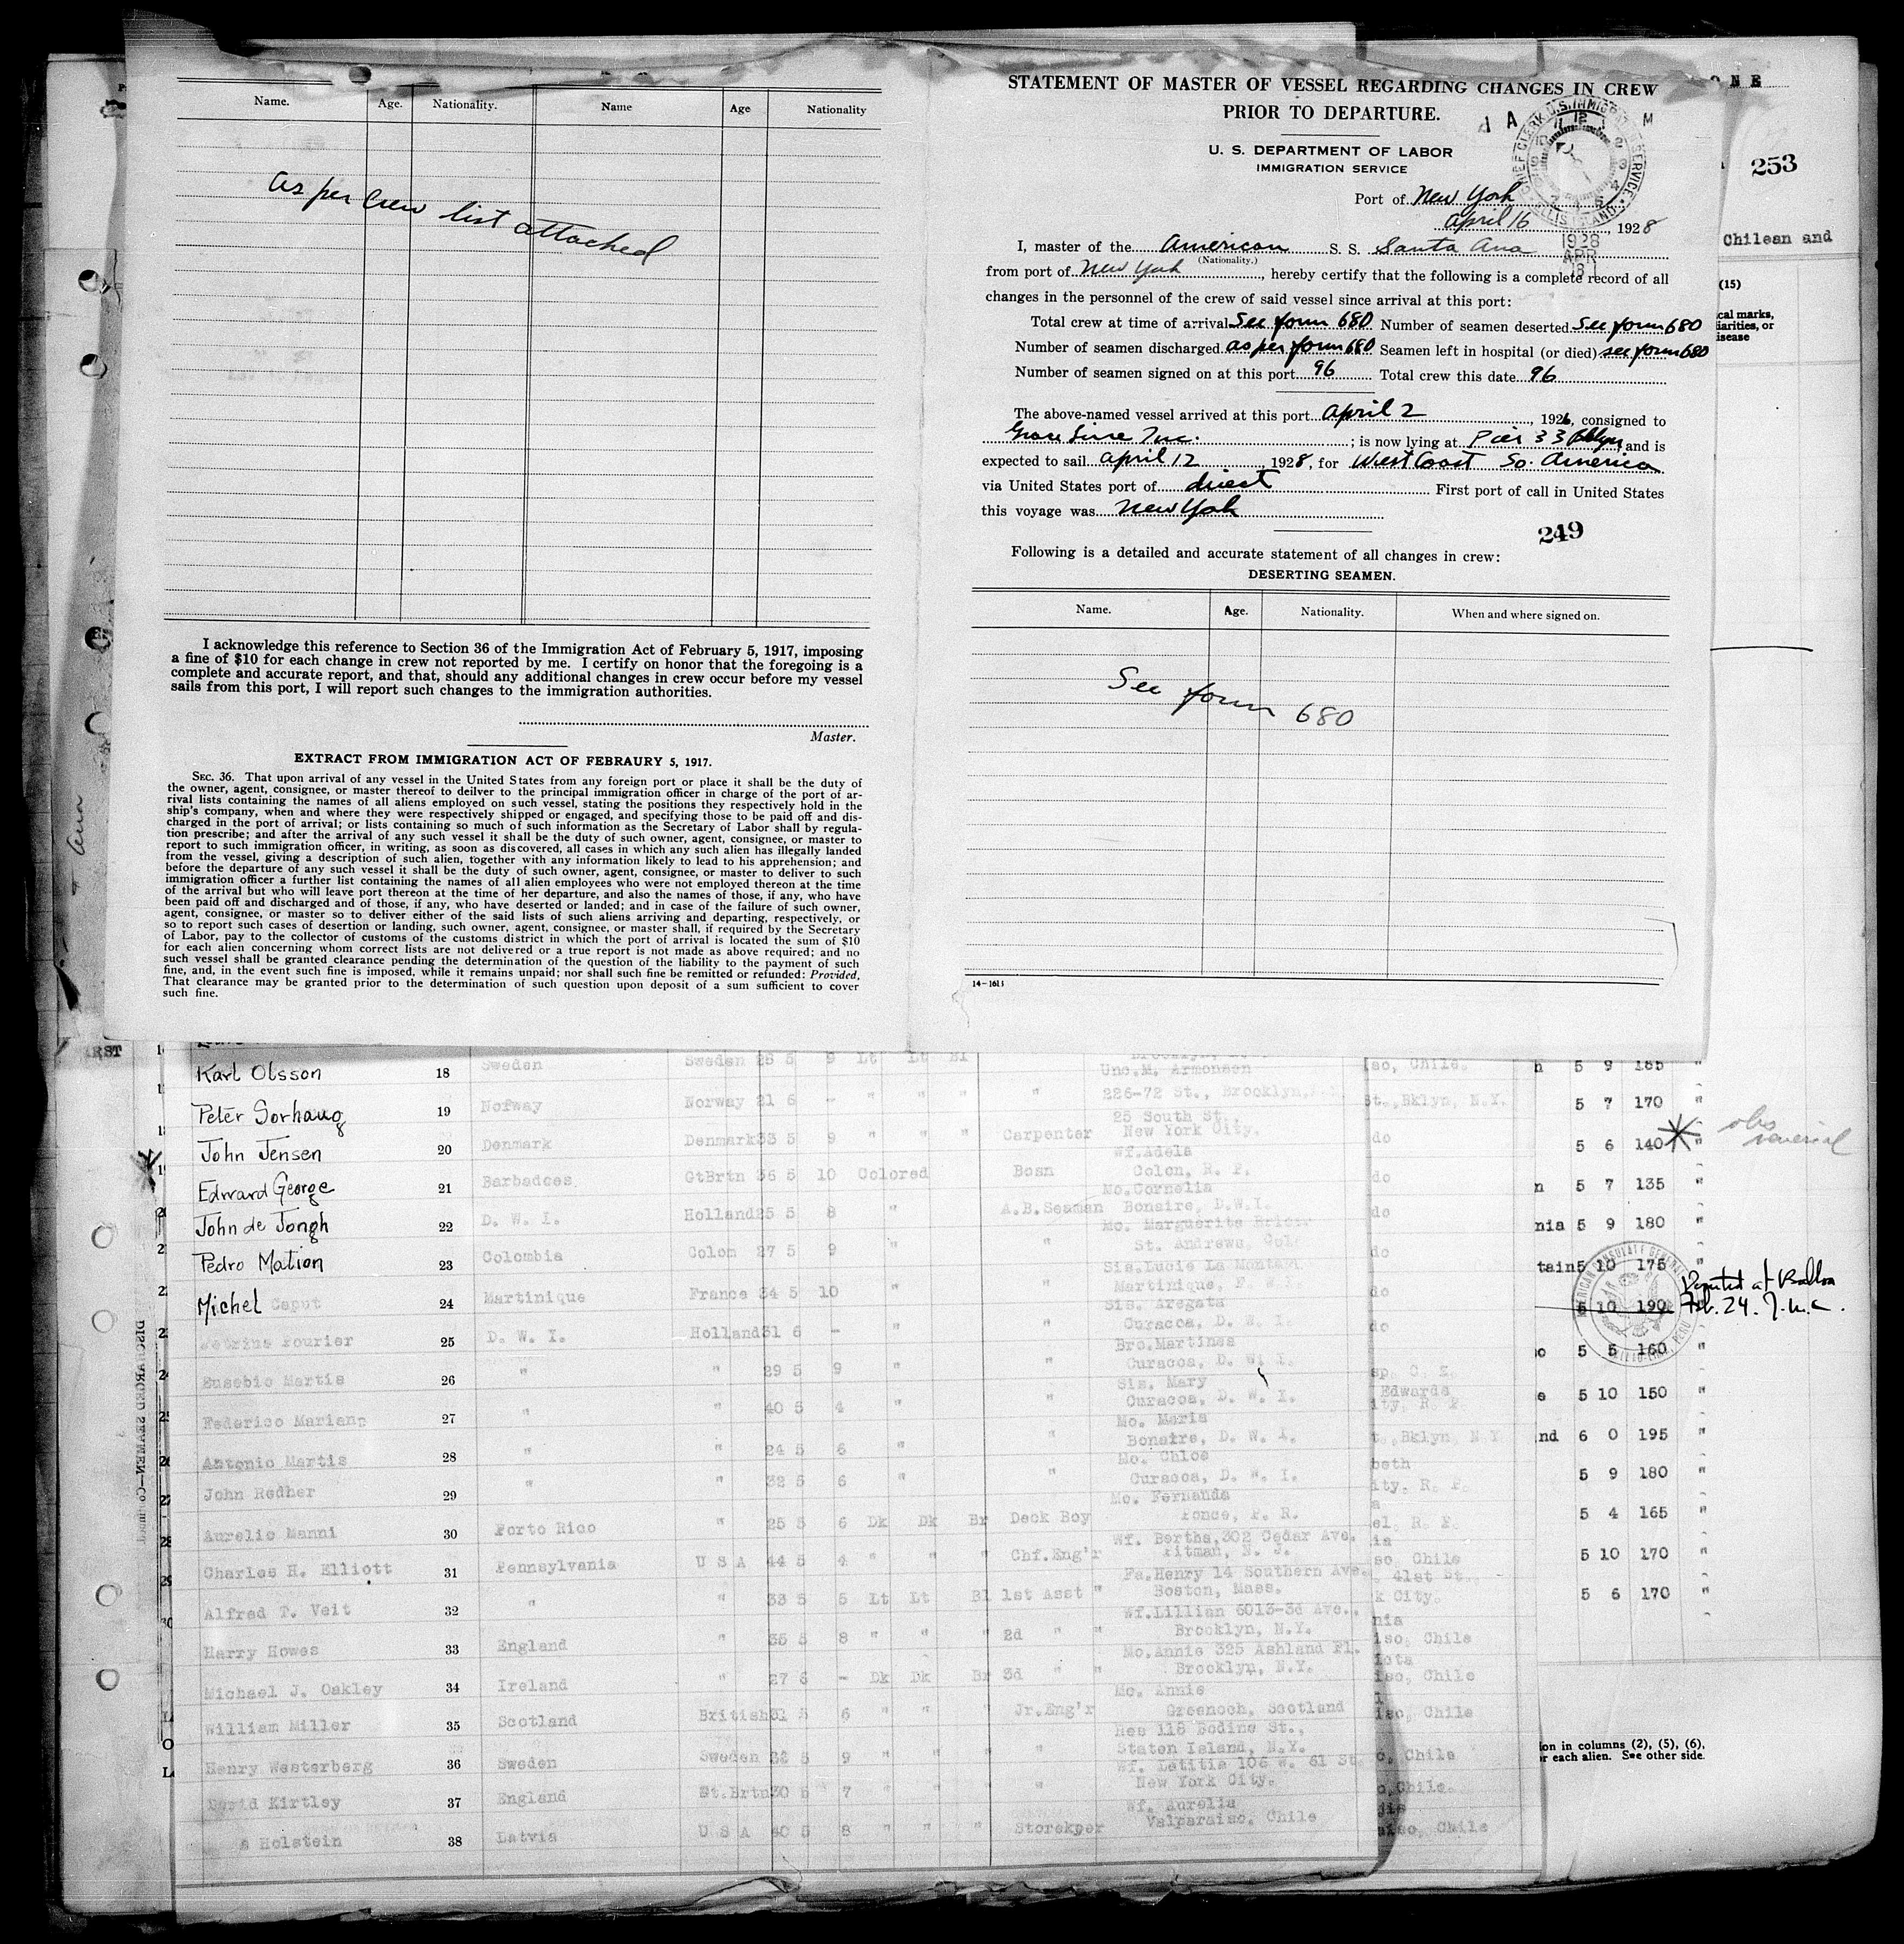 Name. Age. Nationality. Name Age Nationality
as per Crew list attached
I acknowledge this reference to Section 36 of the Immigration Act of February 5, 1917, imposing
a fine of $10 for each change in crew not reported by me. I certify on honor that the foregoing is a
complete and accurate report, and that, should any additional changes in crew occur before my vessel
sails from this port, I will report such changes to the immigration authorities.
Master.
EXTRACT FROM IMMIGRATION ACT OF FEBRAURY 5, 1917.
SEC. 36. That upon arrival of any vessel in the United States from any foreign port or place it shall be the duty of
the owner, agent, consignee, or master thereof to deilver to the principal immigration officer in charge of the port of ar-
rival lists containing the names of all aliens employed on such vessel, stating the positions they respectively hold in the
ship's company, when and where they were respectively shipped or engaged, and specifying those to be paid off and dis-
charged in the port of arrival; or lists containing so much of such information as the Secretary of Labor shall by regula-
tion prescribe; and after the arrival of any such vessel it shall be the duty of such owner, agent, consignee, or master to
report to such immigration officer, in writing, as soon as discovered, all cases in which any such alien has illegally landed
from the vessel, giving a description of such alien, together with any information likely to lead to his apprehension; and
before the departure of any such vessel it shall be the duty of such owner, agent, consignee, or master to deliver to such
immigration officer a further list containing the names of all alien employees who were not employed thereon at the time
of the arrival but who will leave port thereon at the time of her departure, and also the names of those, if any, who have
been paid off and discharged and of those, if any, who have deserted or landed; and in case of the failure of such owner,
agent, consignee, or master so to deliver either of the said lists of such aliens arriving and departing, respectively, or
so to report such cases of desertion or landing, such owner, agent, consignee, or master shall, if required by the Secretary
of Labor, pay to the collector of customs of the customs district in which the port of arrival is located the sum of $10
for each alien concerning whom correct lists are not delivered or a true report is not made as above required; and no
such vessel shall be granted clearance pending the determination of the question of the liability to the payment of such
fine, and, in the event such fine is imposed, while it remains unpaid; nor shall such fine be remitted or refunded: Provided,
That clearance may be granted prior to the determination of such question upon deposit of a sum sufficient to cover
such fine.
STATEMENT OF MASTER OF VESSEL REGARDING CHANGES IN CREW
PRIOR TO DEPARTURE.
U. S. DEPARTMENT OF LABOR
IMMIGRATION SERVICE
Port of New York
April 16, 1928
1928
APR
I, master of the American S. S. Santa Ana
(Nationality.)
from port of New York, hereby certify that the following is a complete record of all
changes in the personnel of the crew of said vessel since arrival at this port:
Total crew at time of arrival See form 680 Number of seamen deserted See form 680
Number of seamen discharged as per form 680 Seamen left in hospital (or died) see form 680
Number of seamen signed on at this port 96 Total crew this date 96
The above-named vessel arrived at this port April 2, 1926, consigned to
Grace Line Inc.; is now lying at Pier 33 Bklyn, and is
expected to sail April 12, 1928, for West Coast So. America
via United States port of direct First port of call in United States
this voyage was New York
249
Following is a detailed and accurate statement of all changes in crew:
DESERTING SEAMEN.
Name. Age. Nationality. When and where signed on.
See form 680
14-1613
ONE
253
Chilean and
(15)
cal marks,
iarities, or
isease
Karl Olsson 18 Sweden Sweden 25 5 9 Lt Lt Bl
Unc.M. Armonsen
Peter Sorhaug 19 Norway Norway 21 6 - " " " " 226-72 St., Brooklyn,
25 South St.,
John Jensen 20 Denmark Denmark 33 5 9 " " " Carpenter New York City. do
Wf.Adela
Edward George 21 Barbadoes GtBrtn 36 5 10 Colored Bosn Colon, R. P. do
Mo.Cornelia
John de Jongh 22 D. W. I. Holland 25 5 8 " A.B.Seaman Bonaire, D.W.I. do
Mo. Marguerite
Pedro Mation 23 Colombia Colom 27 5 9 " " St. Andrews, Col do
Sis.Lucie La Montagn
Michel Caput 24 Martinique France 34 5 10 " " Martinique, F. W. I. do
Sis. Aregata
Fourier 25 D. W. I. Holland 31 6 - " " Curacoa, D. W. I. do
Bro.Martines
Eusebio Martis 26 " " 29 5 9 " " Curacoa, D. W. I.
Sis. Mary
Federico Mariano 27 " " 40 5 4 " " Curacoa, D. W. I.
Mo. Maria
Antonio Martis 28 " " 24 5 6 " " Bonaire, D. W. I.
Mo. Chloe
John Redher 29 " " 32 5 6 " " Curacoa, D. W. I.
Mo. Fernanda
Aurelio Manni 30 Porto Rico " 25 5 6 Dk Dk Br Deck Boy Ponce, P. R.
Wf. Bertha,302 Cedar Ave.
Charles H. Elliott 31 Pennsylvania U S A 44 5 4 " " " Chf.Eng'r Pitman, N. J.
Fa.Henry 14 Southern Ave.
Alfred T. Veit 32 " " 33 5 5 Lt Lt Bl 1st Asst " Boston, Mass.
Wf.Lillian 6013-3d Ave.,
Harry Howes 33 England " 35 5 8 " " " 2d " " Brooklyn, N.Y.
Mo.Annie 325 Ashland Pl.
Michael J. Oakley 34 Ireland " 27 6 - Dk Dk Br 3d " " Brooklyn, N.Y.
Mo. Annie
William Miller 35 Scotland British 31 5 6 " " " Jr.Eng'r Greenoch, Scotland
Res 118 Bodine St.,
Henry Westerberg 36 Sweden Sweden 32 5 9 " " " " Staten Island, N.Y.
Wf. Letitia 106 W. 61 St.
David Kirtley 37 England Gt.Brtn 30 5 7 " " " " New York City.
Wf. Aurelia
Holstein 38 Latvia U S A 40 5 8 " " " Storekper Valparaiso, Chile
5 9 185 "
5 7 170 "
5 6 140 "
5 7 135 "
nia 5 9 180 "
tain 5 10 175 "
5 10 190
5 5 160 "
5 10 150 "
nd 6 0 195 "
5 9 180 "
5 4 165 "
5 10 170 "
5 6 170 "
obs
venereal
Deported at Balboa
Feb. 24. J.M.C.
DISCHARGED SEAMEN—Continued
ion in columns (2), (5), (6),
or each alien. See other side.